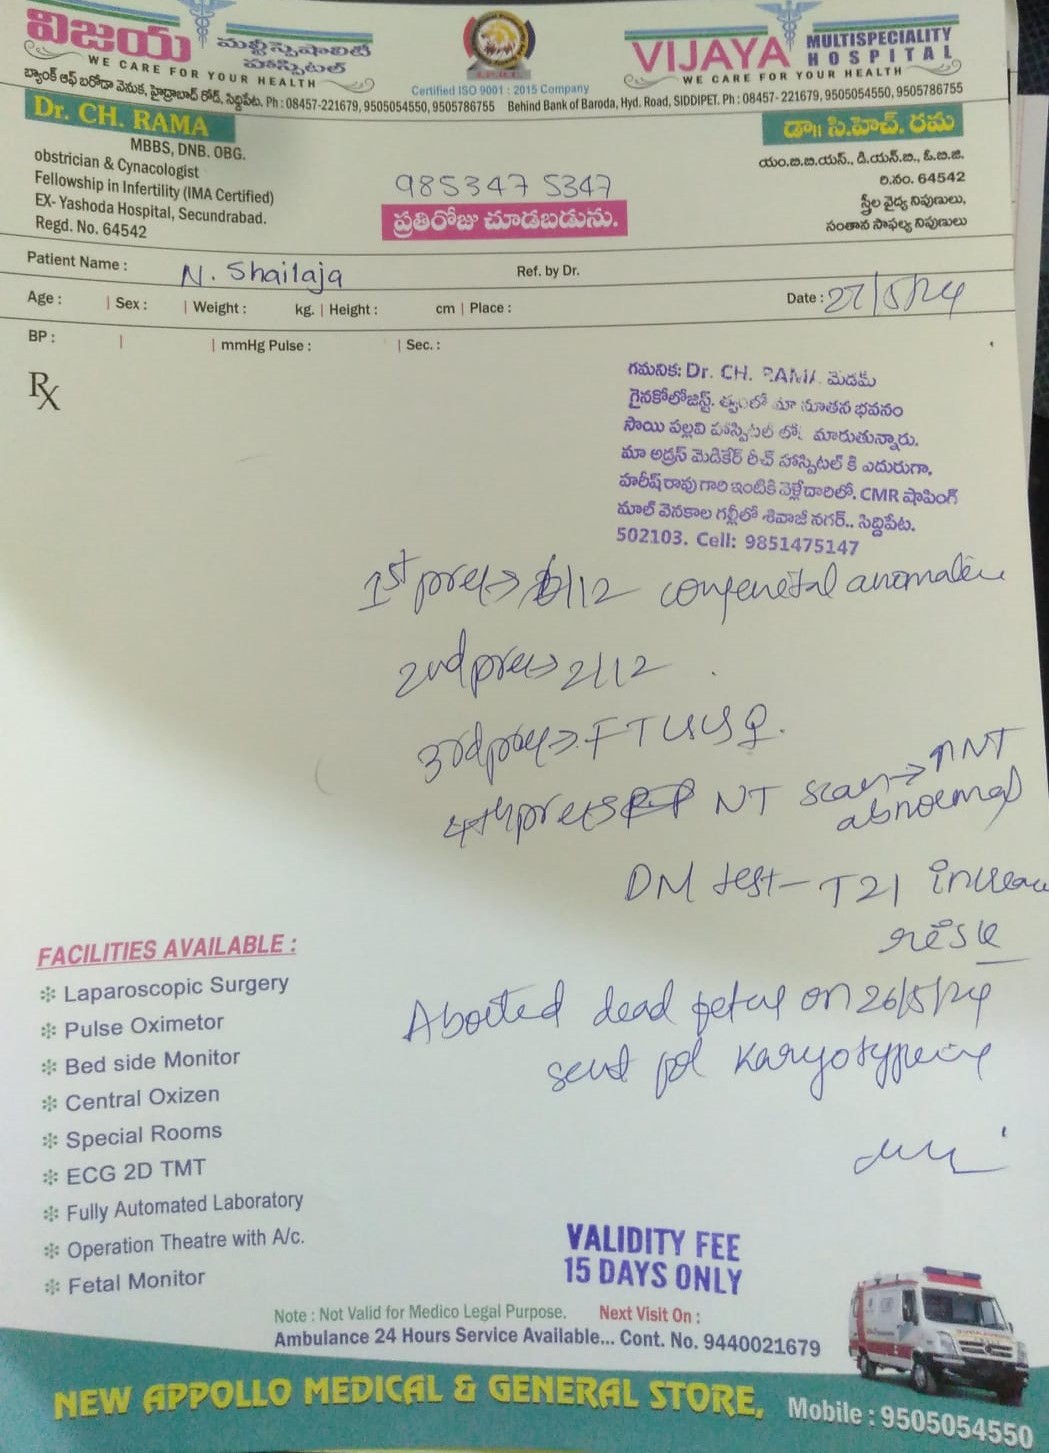 విజయ మల్టీస్పెషాలిటీ హాస్పిటల్
WE CARE FOR YOUR HEALTH
VIJAYA MULTISPECIALITY HOSPITAL
WE CARE FOR YOUR HEALTH
Certified ISO 9001 : 2015 Company
బ్యాంక్ ఆఫ్ బరోడా వెనుక, హైద్రాబాద్ రోడ్, సిద్దిపేట. Ph : 08457-221679, 9505054550, 9505786755
Behind Bank of Baroda, Hyd. Road, SIDDIPET. Ph : 08457- 221679, 9505054550, 9505786755
Dr. CH. RAMA
MBBS, DNB. OBG.
obstrician & Cynacologist
Fellowship in Infertility (IMA Certified)
EX- Yashoda Hospital, Secundrabad.
Regd. No. 64542
9853475347
ప్రతిరోజు చూడబడును.
డా॥ సి.హెచ్. రమ
యం.బి.బి.యస్., డి.యన్.బి., ఓ.బి.జి.
రి.నం. 64542
స్త్రీల వైద్య నిపుణులు,
సంతాన సాఫల్య నిపుణులు
Patient Name : N. Shailaja Ref. by Dr.
Age : | Sex : | Weight : kg. | Height : cm | Place : Date : 27/5/24
BP : | | mmHg Pulse : | Sec. :
Rx
గమనిక: Dr. CH. RAMA మెడమ్
గైనకోలోజిస్ట్. త్వంలో మా నూతన భవనం
సాయి పల్లవి హాస్పిటల్ లో. మారుతున్నారు.
మా అడ్రస్ మెడికేర్ రీచ్ హాస్పిటల్ కి ఎదురుగా,
హరీష్ రావు గారి ఇంటికి వెళ్లేదారిలో. CMR షాపింగ్
మాల్ వెనకాల గల్లీలో శివాజీ నగర్.. సిద్దిపేట.
502103. Cell: 9851475147
1st preg→ /12 congenital anomalie
2nd preg→ 2/12
3rd preg→ FT ♀.
4th preg→ NT scan→ NT
abnormal
DM test- T21 increase
risk
Aborted dead fetus on 26/5/24
sent for Karyotyping
FACILITIES AVAILABLE :
❇ Laparoscopic Surgery
❇ Pulse Oximetor
❇ Bed side Monitor
❇ Central Oxizen
❇ Special Rooms
❇ ECG 2D TMT
❇ Fully Automated Laboratory
❇ Operation Theatre with A/c.
❇ Fetal Monitor
VALIDITY FEE
15 DAYS ONLY
Note : Not Valid for Medico Legal Purpose. Next Visit On :
Ambulance 24 Hours Service Available... Cont. No. 9440021679
NEW APPOLLO MEDICAL & GENERAL STORE, Mobile : 9505054550